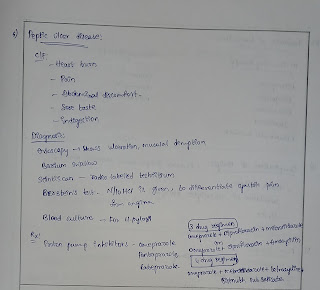 Peptic ulcer disease:
C/F:
- Heart burn
- Pain
- Abdominal discomfort
- Sore taste
- Indigestion
Diagnosis:
Endoscopy → Shows ulceration, mucosal disruption
Barium swallow
Scinti scan - Radio labelled technitium
Bernstein's test - N/10 HCl is given, to differentiate gastric pain
from angina
Blood culture - For H. pylori
Rx:
Proton pump inhibitors - omeprazole
Pantoprazole
Rabeprazole
3 drug regimen
omeprazole + clarithromycin + metronidazole
or
omeprazole + clarithromycin + Amoxycillin
4 drug regimen
omeprazole + + tetracycline +
Bismuth sub salicylate